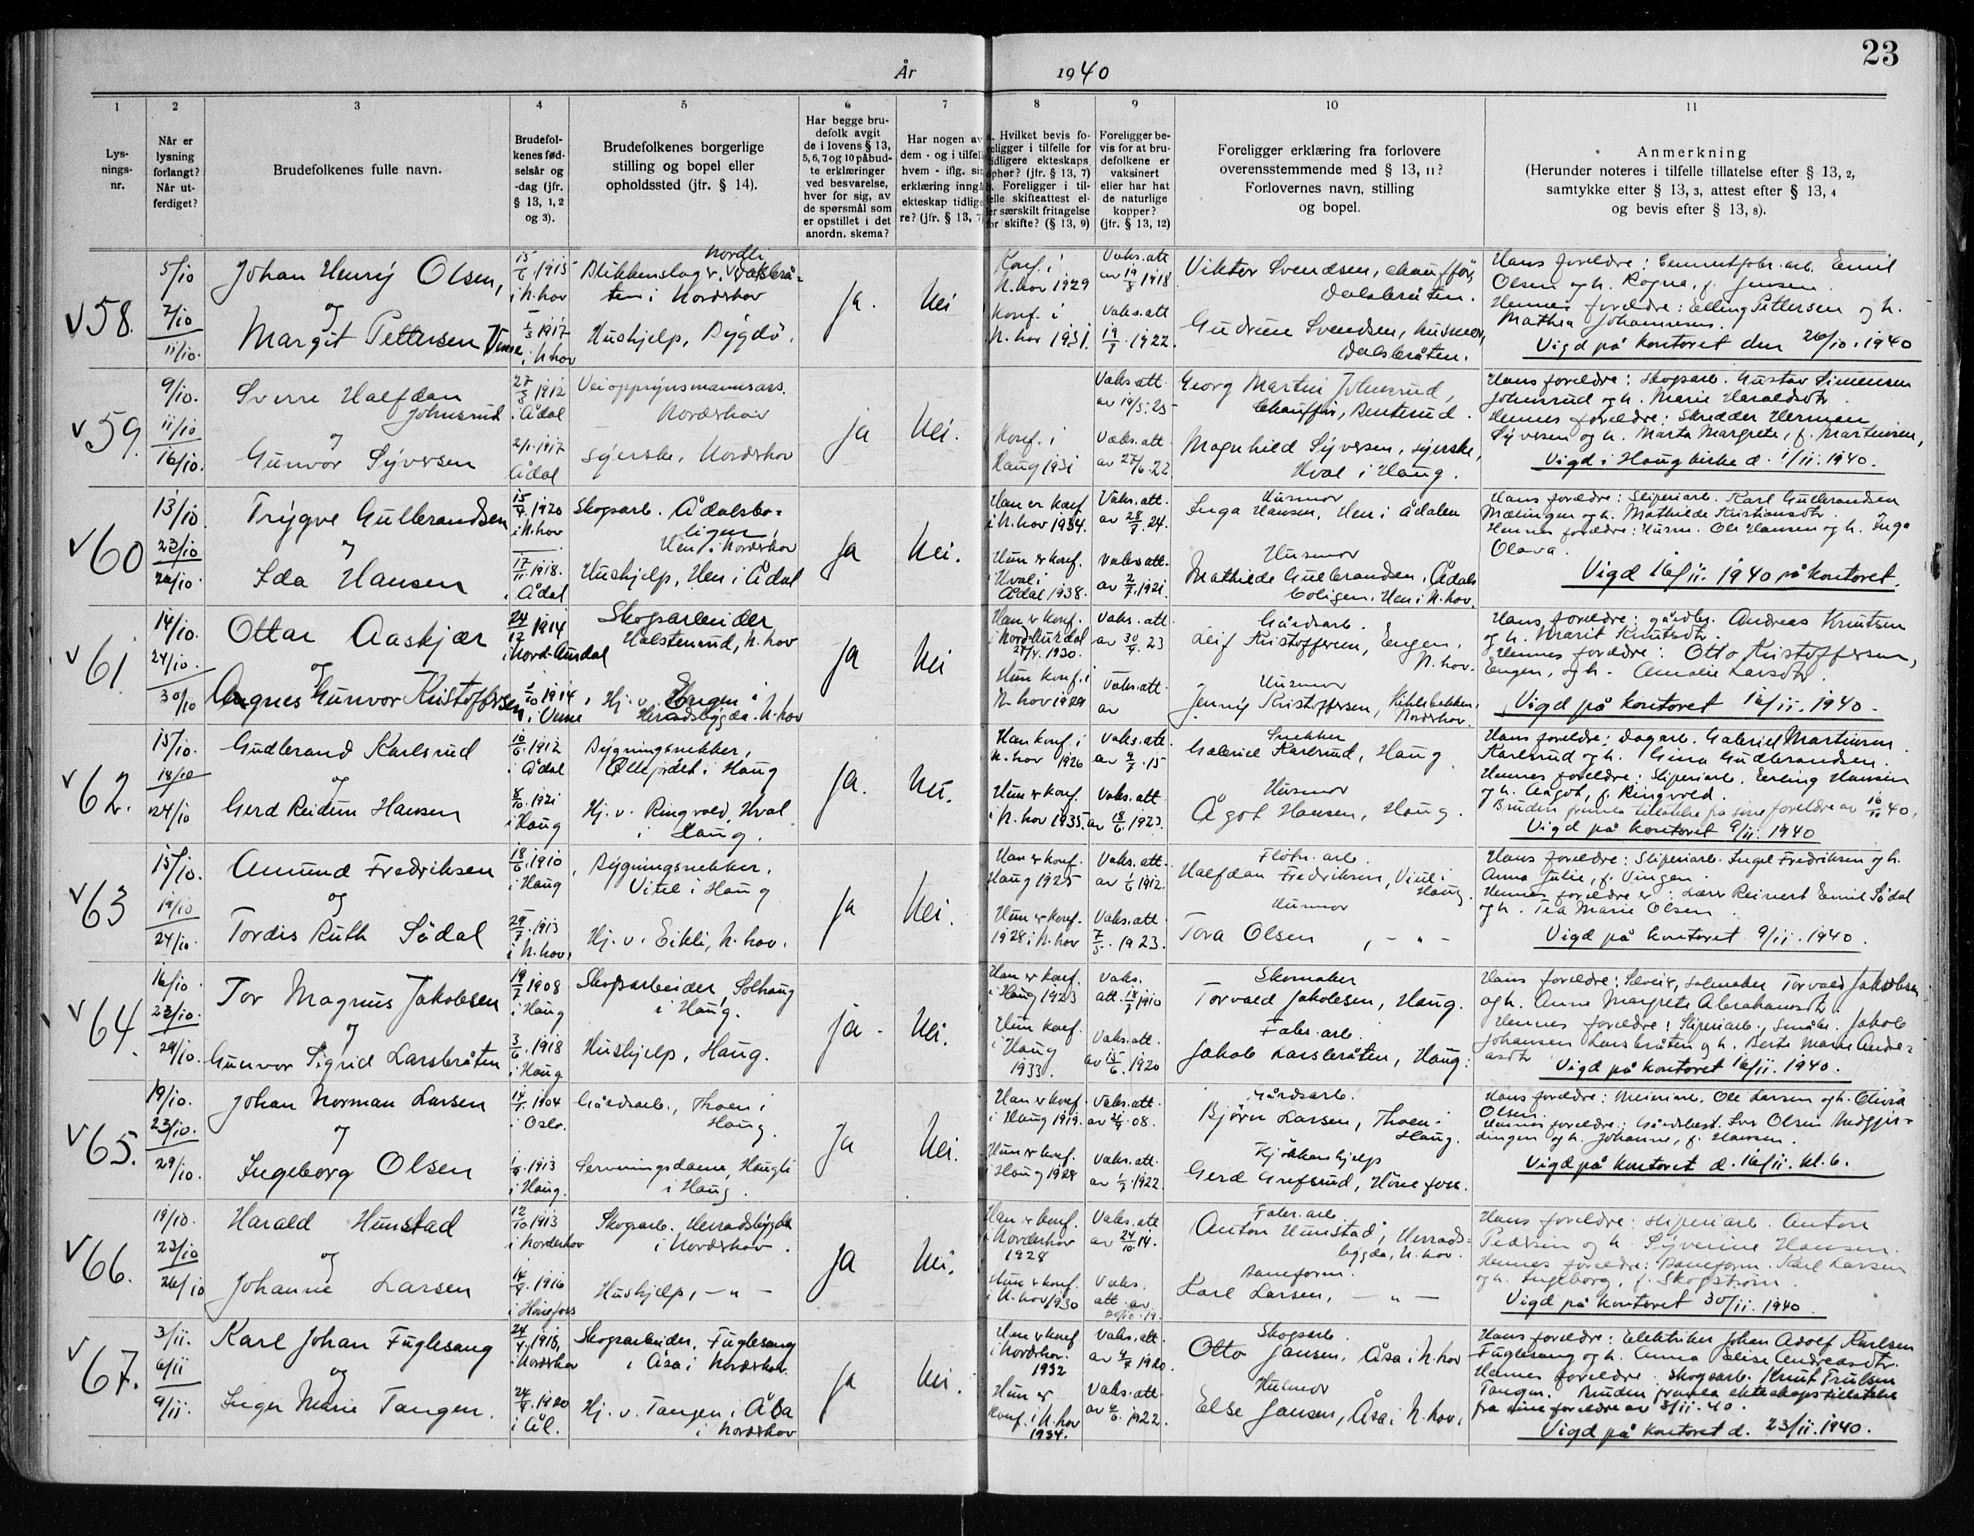 23
År 1940
1 2 3 4 5 6 7 8 9 10 11
Lys-
nings-
nr.
Når er
lysning
forlangt?
Når ut-
ferdiget?
Brudefolkenes fulle navn.
Brudefol-
kenes fød-
selsår og
-dag (jfr.
§ 13, 1, 2
og 3).
Brudefolkenes borgerlige
stilling og bopel eller
opholdssted (jfr. § 14).
Har begge bru-
defolk avgit
de i lovens § 13,
5, 6, 7 og 10 påbud-
te erklæringer
ved besvarelse,
hver for sig, av
de spørsmål som
er opstillet i det
anordn. skema?
Har nogen av
dem - og i tilfelle
hvem - iflg. sin
erklæring inngå
ekteskap tidlige
re? (jfr. § 13, 7)
Hvilket bevis fo-
religger i tilfelle for
tidligere ekteskaps
ophør? (jfr. § 13, 7)
Foreligger i til-
felle skifteattest el-
ler særskilt fritagelse
for skifte? (§ 13, 9)
Foreligger be-
vis for at bru-
defolkene er
vaksinert
eller har hat
de naturlige
kopper?
(jfr. § 13, 12)
Foreligger erklæring fra forlovere
overensstemmende med § 13, 11?
Forlovernes navn, stilling
og bopel.
Anmerkning
(Herunder noteres i tilfelle tillatelse efter § 13, 2,
samtykke etter § 13, 3, attest efter § 13, 4
og bevis efter § 13, 8).
v 58.
5/10
7/10
11/10.
Johan Henry Olsen,
og
Margit Pettersen
15/6.1915
i N.hov
1/3 1917
i N.hov
Blikkenslag. Nordli
i Norderhov
Hushjelp, Bygdø.
Ja. Nei
Konf. i
N.hov 1929
Konf. i
N.hov 1931.
Vaks.att
av 19/8 1918
Vaks.att
19/7.1922.
Viktor Svendsen, chauffør,
Dalsbråten.
Gudrun Svendsen, husmor,
Dalsbråten.
Hans foreldre: Cementfabr.arb. Emil
Olsen og h. Ragna, f. Jensen.
Hennes foreldre: Elling Pettersen og h.
Mathea Johannesen.
Vigd på kontoret den 26/10.1940
v 59.
9/10.
11/10
16/10.
Sverre Halfdan
Johnsrud
og
Gunvor Syversen
27/8 1912
i Ådal
2/1.1917
Ådal
Veiopsynsmannsass.
Norderhov
Syerske, Norderhov
Ja Nei.
Konf. i
Haug 1931
Vaks.att
av 19/5.25
Vaks.att.
av 27/6.22
Georg Martin Johnsrud,
Chauffør, Benterud.
Magnhild Syversen, syerske,
Hval i Haug.
Hans foreldre: Skogsarb. Gustav Simensen
Johnsrud og h. Marie Haraldsdtr.
Hennes foreldre: Skredder Herman
Syversen og h. Marta Margrete, f. Martinsen,
Vigd i Haug kirke d. 1/11.1940.
v 60
13/10
23/10
26/10.
Trygve Gulbrandsen
og
Ida Hansen
15/4.1920
i N.hov
17/11.1918.
i Ådal
Skogsarb. Ådalsbo-
ligen,
Hen i Norderhov
Hushjelp, Hen i Ådal
Ja Nei.
Han er konf
i N.hov 1934.
Hun er konf.
Hval i
Ådal 1938.
Vaks.att.
av 28/7.24.
Vaks.att
av 2/7.1921.
Husmor
Inga Hansen, Hen i Ådalen
Husmor
Mathilde Gulbrandsen, Ådals
boligen, Hen i N.hov.
Hans foreldre: Sliperiarb. Karl Gulbrandsen
Mælingen og h. Mathilde Kristiansdtr.
Hennes foreldre: Husm. Ole Hansen og h. Inga
Olava.
Vigd 16/11.1940 på kontoret.
v 61.
14/10.
24/10.
30/10
Ottar Aaskjær
og
Agnes Gunvor Kristoffersen
24/12 1914
i Nord-Aurdal
1/10 1914
i Veme
Skogsarbeider
Halstenrud, N.hov
Hj. v. Engen i
Heradsbygda. N.hov
Ja Nei
Han er konf.
i Nord-Aurdal
27/4.1930.
Hun konf. i
N.hov 1929
Vaks.att.
av 30/9.23
Vaks.att.
av
Gårdsarb.
Leif Kristoffersen, Engen,
N.hov.
Husmor
Jenny Kristoffersen,
Norderhov.
Hans foreldre: gårdbr. Andreas Knutsen
og h. Marit Knutsdtr.
Hennes foreldre: Otto Kristoffersen,
Engen, og h. Amalie Larsdtr.
Vigd på kontoret 16/11.1940.
v 62.
15/10.
18/10
24/10
Gudbrand Karlsrud
og
Gerd Reidun Hansen
10/6.1912
i Ådal
8/10.1921
i Haug
Bygningssnekker,
i Haug
Hj. v. Ringvold, Hval
i Haug.
Ja. Nei.
Han konf. i
N.hov 1926
Hun er konf.
i N.hov 1935.
Vaks.att.
av 2/7.15
Vaks.att.
av 18/6.1923.
Snekker
Gabriel Karlsrud, Haug
Husmor
Ågot Hansen, Haug.
Hans foreldre: Dagarb. Gabriel Martinsen
Karlsrud og h. Gina Gudbrandsen.
Hennes foreldre: Sliperiarb. Erling Hansen
og h. Aagot, f. Ringvold.
Bruden fremla tillatelse fra sine foreldre av 16/10 40.
Vigd på kontoret 9/11.1940
v 63
15/10.
19/10
24/10.
Amund Fredriksen
og
Tordis Ruth Sødal
18/6.1910
i Haug
29/7.1913
i N.hov.
Bygningssnekker,
Vitul i Haug
Hj. v. Eikli, N.hov.
Ja Nei.
Han er konf.
Haug 1925
Hun er konf.
1928 i N.hov
Vaks.att.
av 1/6 1912.
Vaks.att.
7/5.1923.
Fløtn.arb.
Halfdan Fredriksen, Vitul i
Haug.
Husmor
Tora Olsen, - " -
Hans foreldre: Sliperiarb. Ingel Fredriksen og h.
Anna Julie, f. Vingen.
Hennes foreldre er: Lærer Reinert Emil Sødal
og h. Tea Marie Olsen.
Vigd på kontoret 9/11.1940.
v 64.
16/10.
23/10.
29/10.
Tor Magnus Jakobsen
og
Gunvor Sigrid Larsbråten
19/7 1908
i Haug
3/6.1918
i Haug
Skogsarbeider, Solhaug
i Haug.
Hushjelp, Haug.
Ja. Nei.
Han er konf.
i Haug 1923
Hun konf.
i Haug
1933.
Vaks.
att. 14/7 1910
Vaks.att.
av 15/6.1920
Skomaker
Torvald Jakobsen, Haug.
Fabr.arb.
Jakob Larsbråten, Haug.
Hans foreldre: skomaker Torvald Jakobsen
og h. Anne Margrete Abrahamsdtr.
Hennes foreldre: Sliperiarb. småbr. Jakob
Johansen Larsbråten og h. Berte Marie Andre-
asdtr
Vigd på kontoret 16/11.1940.
v 65.
19/10.
23/10.
29/10.
Johan Norman Larsen
og
Ingeborg Olsen
i Oslo.
1913
i Haug.
Gårdsarb., Thoen i
Haug.
Serveringsdame, Haugli
i Haug.
Ja Nei.
Han er konf.
i Haug 1919.
Hun er konf.
i Haug 1928
Vaks.att.
Vaks.att.
av 1/7.1922
Gårdsarb.
Bjørn Larsen, Thoen i
Haug.
Kjøkkenhjelp
Gerd Grefsrud, Hønefoss.
Hans foreldre: Ole Larsen og h. Olivia
Olsen.
Hennes foreldre: Gårdbest. Iver Olsen
og h. Johanne, f. Hansen.
Vigd på kontoret d. 16/11. kl. 6.
v 66.
19/10.
23/10
26/10
Harald Hunstad
og
Johanne Larsen
12/10 1913
i Norderhov
14/9.1916
i Hønefoss
Skogsarb. Heradsbygda
i Norderhov.
Hushjelp, - " -
Ja Nei.
Han er konf.
Norderhov
1928
Hun er konf.
i N.hov 1930
Vaks.att
av 24/10 14.
Vaks.
att. av
Fabr.arb.
Anton Hunstad, Herads-
bygda, N.hov.
Baneform.
Karl Larsen, - " -
Hans foreldre: Sliperiarb. Anton
Pedersen og h. Syverine Hansen.
Hennes foreldre: Baneform. Karl Larsen
og h. Ingeborg, f. Skogstrøm.
Vigd på kontoret 30/11.1940.
v 67.
3/11.
6/11
9/11.
Karl Johan Fuglesang
og
Inger Marie Tangen.
24/4.1918,
i Norderhov
24/7.1920
i Ål.
Skogsarbeider, Fuglesang
i Åsa i Norderhov.
Hj. v. Tangen i Åsa
i Norderhov
Ja Nei.
Han er konf
i Norderhov.
1932
Hun er
konf. i N.hov
1934.
Vaks.att.
av 4/7 1920.
Vaks.att.
av 2/6.1922.
Skogsarb.
Otto Jansen, Åsa i N.hov
Husmor
Else Jansen, Åsa i N.hov.
Hans foreldre: Elektriker Johan Adolf Karlsen
Fuglesang og h. Anna Elise Andreasdtr.
Hennes foreldre: Skogsarb. Knut Trulsen
Tangen. Bruden fremla ekteskapstillatelse
fra sine foreldre av 3/11.40.
Vigd på kontoret d. 23/11.1940.